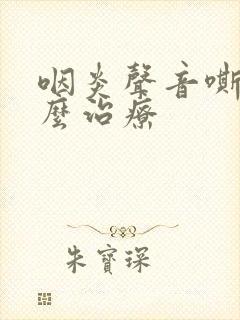 咽炎聲音嘶
麼治療
朱寶琛